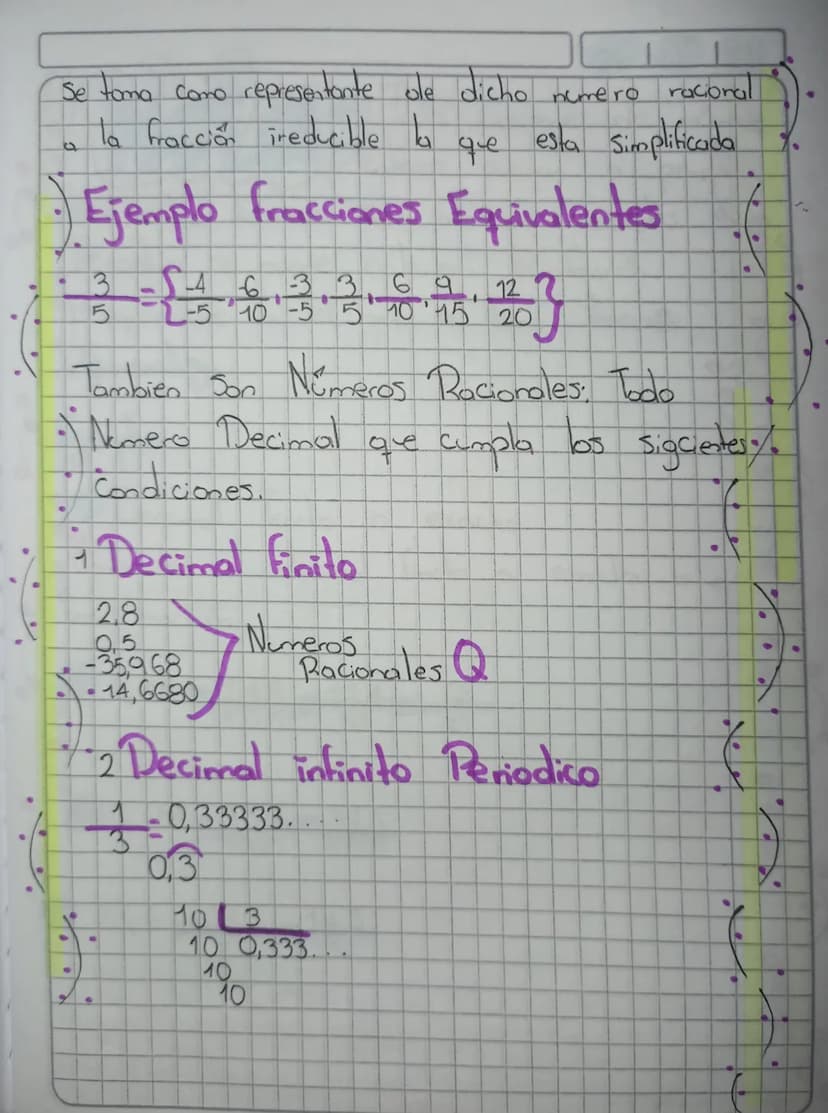 Se toma como representante de dicho numero racional
a la fracción ireducible la que esta simplificada
Ejemplo fracciones Equivalentes
3/5 = {-4/-5, -6/10, -3/-5, 3/5, 6/10, 9/15, 12/20}
Tambien Son Números Racionales: Todo
Numero Decimal que cumpla los sigcientes
Condiciones.
1 Decimal finito
2,8
0,5
-35,968
-14,6680
Numeros
Racionales Q
2 Decimal infinito Periodico
1/3 = 0,33333....
0,3̑
10 3
10 0,333...
10
10